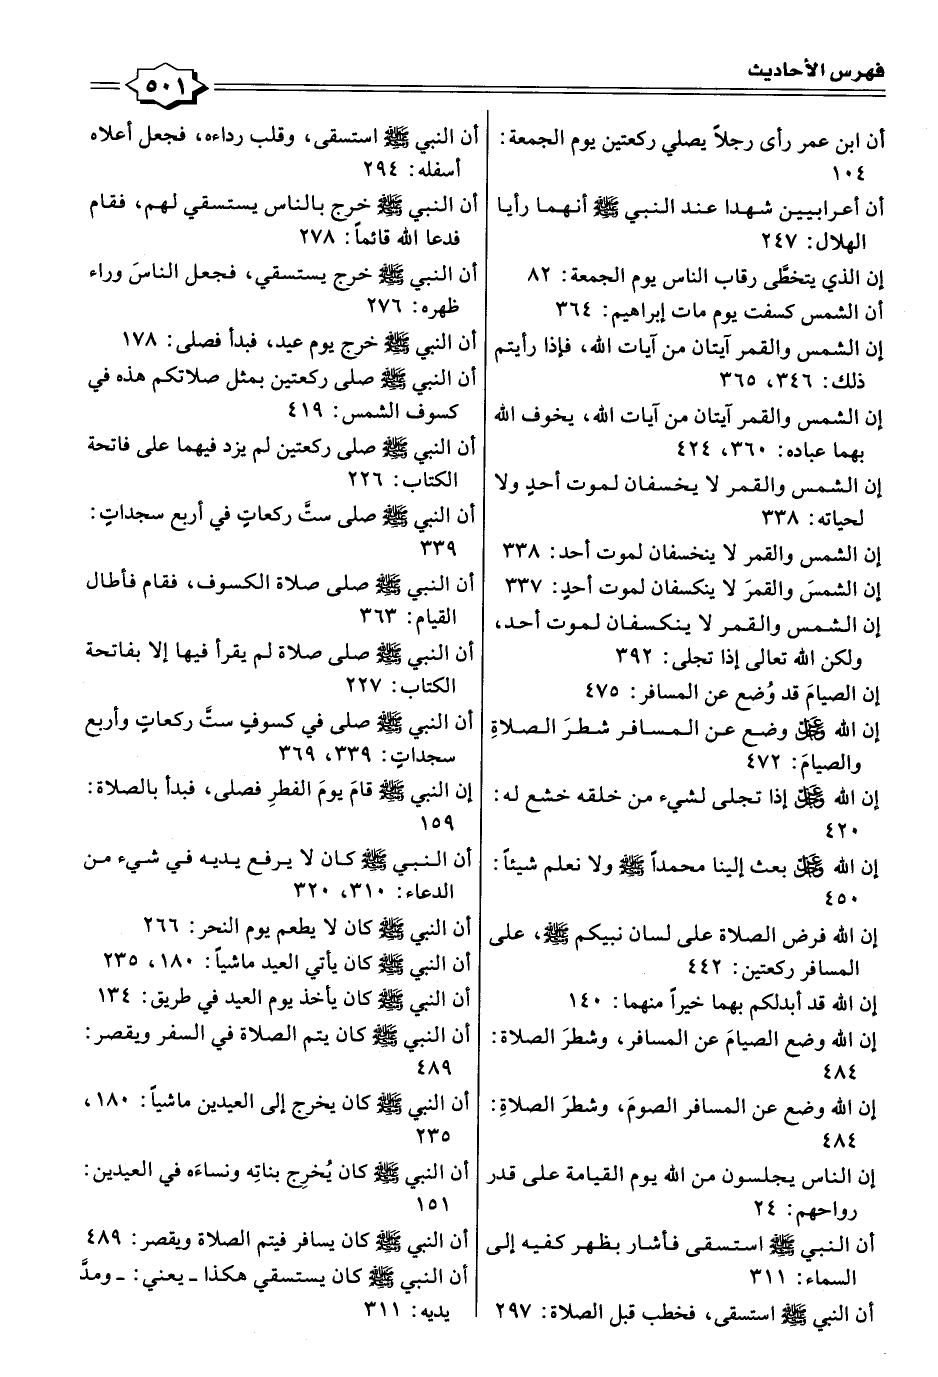 فهرس الأحاديث
٥٠١
أن ابن عمر رأى رجلاً يصلي ركعتين يوم الجمعة:
١٠٤
أن أعرابيين شهدا عند النبي ﷺ أنهما رأيا
الهلال: ٢٤٧
إن الذي يتخطَّى رقاب الناس يوم الجمعة: ٨٢
أن الشمس كسفت يوم مات إبراهيم: ٣٦٤
إن الشمس والقمر آيتان من آيات الله، فإذا رأيتم
ذلك: ٣٤٦، ٣٦٥
إن الشمس والقمر آيتان من آيات الله، يخوف الله
بهما عباده: ٣٦٠، ٤٢٤
إن الشمس والقمر لا يخسفان لموت أحدٍ ولا
لحياته: ٣٣٨
إن الشمس والقمر لا ينخسفان لموت أحد: ٣٣٨
إن الشمسَ والقمرَ لا ينكسفان لموت أحدٍ: ٣٣٧
إن الشمس والقمر لا ينكسفان لموت أحد،
ولكن الله تعالى إذا تجلى: ٣٩٢
إن الصيامَ قد وُضع عن المسافر: ٤٧٥
إن الله ﷻ وضع عن المسافر شطرَ الصلاةِ
والصيامَ: ٤٧٢
إن الله ﷻ إذا تجلى لشيء من خلقه خشع له:
٤٢٠
إن الله ﷻ بعث إلينا محمداً ﷺ ولا نعلم شيئاً:
٤٥٠
إن الله فرض الصلاة على لسان نبيكم ﷺ، على
المسافر ركعتين: ٤٤٢
إن الله قد أبدلكم بهما خيراً منهما: ١٤٠
إن الله وضع الصيامَ عن المسافر، وشطرَ الصلاة:
٤٨٤
إن الله وضع عن المسافر الصومَ، وشطرَ الصلاةِ:
٤٨٤
إن الناس يجلسون من الله يوم القيامة على قدر
رواحهم: ٢٤
أن النبي ﷺ استسقى فأشار بظهر كفيه إلى
السماء: ٣١١
أن النبي ﷺ استسقى، فخطب قبل الصلاة: ٢٩٧
أن النبي ﷺ استسقى، وقلب رداءه، فجعل أعلاه
أسفله: ٢٩٤
أن النبي ﷺ خرج بالناس يستسقي لهم، فقام
فدعا الله قائماً: ٢٧٨
أن النبي ﷺ خرج يستسقي، فجعل الناسَ وراء
ظهره: ٢٧٦
أن النبي ﷺ خرج يوم عيد، فبدأ فصلى: ١٧٨
أن النبي ﷺ صلى ركعتين بمثل صلاتكم هذه في
كسوف الشمس: ٤١٩
أن النبي ﷺ صلى ركعتين لم يزد فيهما على فاتحة
الكتاب: ٢٢٦
أن النبي ﷺ صلى ستَّ ركعاتٍ في أربع سجداتٍ:
٣٣٩
أن النبي ﷺ صلى صلاة الكسوف، فقام فأطال
القيام: ٣٦٣
أن النبي ﷺ صلى صلاة لم يقرأ فيها إلا بفاتحة
الكتاب: ٢٢٧
أن النبي ﷺ صلى في كسوفٍ ستَّ ركعاتٍ وأربع
سجداتٍ: ٣٣٩، ٣٦٩
إن النبي ﷺ قامَ يومَ الفطرِ فصلى، فبدأ بالصلاة:
١٥٩
أن النبي ﷺ كان لا يرفع يديه في شيء من
الدعاء: ٣١٠، ٣٢٠
أن النبي ﷺ كان لا يطعم يوم النحر: ٢٦٦
أن النبي ﷺ كان يأتي العيد ماشياً: ١٨٠، ٢٣٥
أن النبي ﷺ كان يأخذ يوم العيد في طريق: ١٣٤
أن النبي ﷺ كان يتم الصلاة في السفر ويقصر:
٤٨٩
أن النبي ﷺ كان يخرج إلى العيدين ماشياً: ١٨٠،
٢٣٥
أن النبي ﷺ كان يُخرِج بناتِه ونساءَه في العيدين:
١٥١
أن النبي ﷺ كان يسافر فيتم الصلاة ويقصر: ٤٨٩
أن النبي ﷺ كان يستسقي هكذا ـ يعني: ـ ومدَّ
يديه: ٣١١